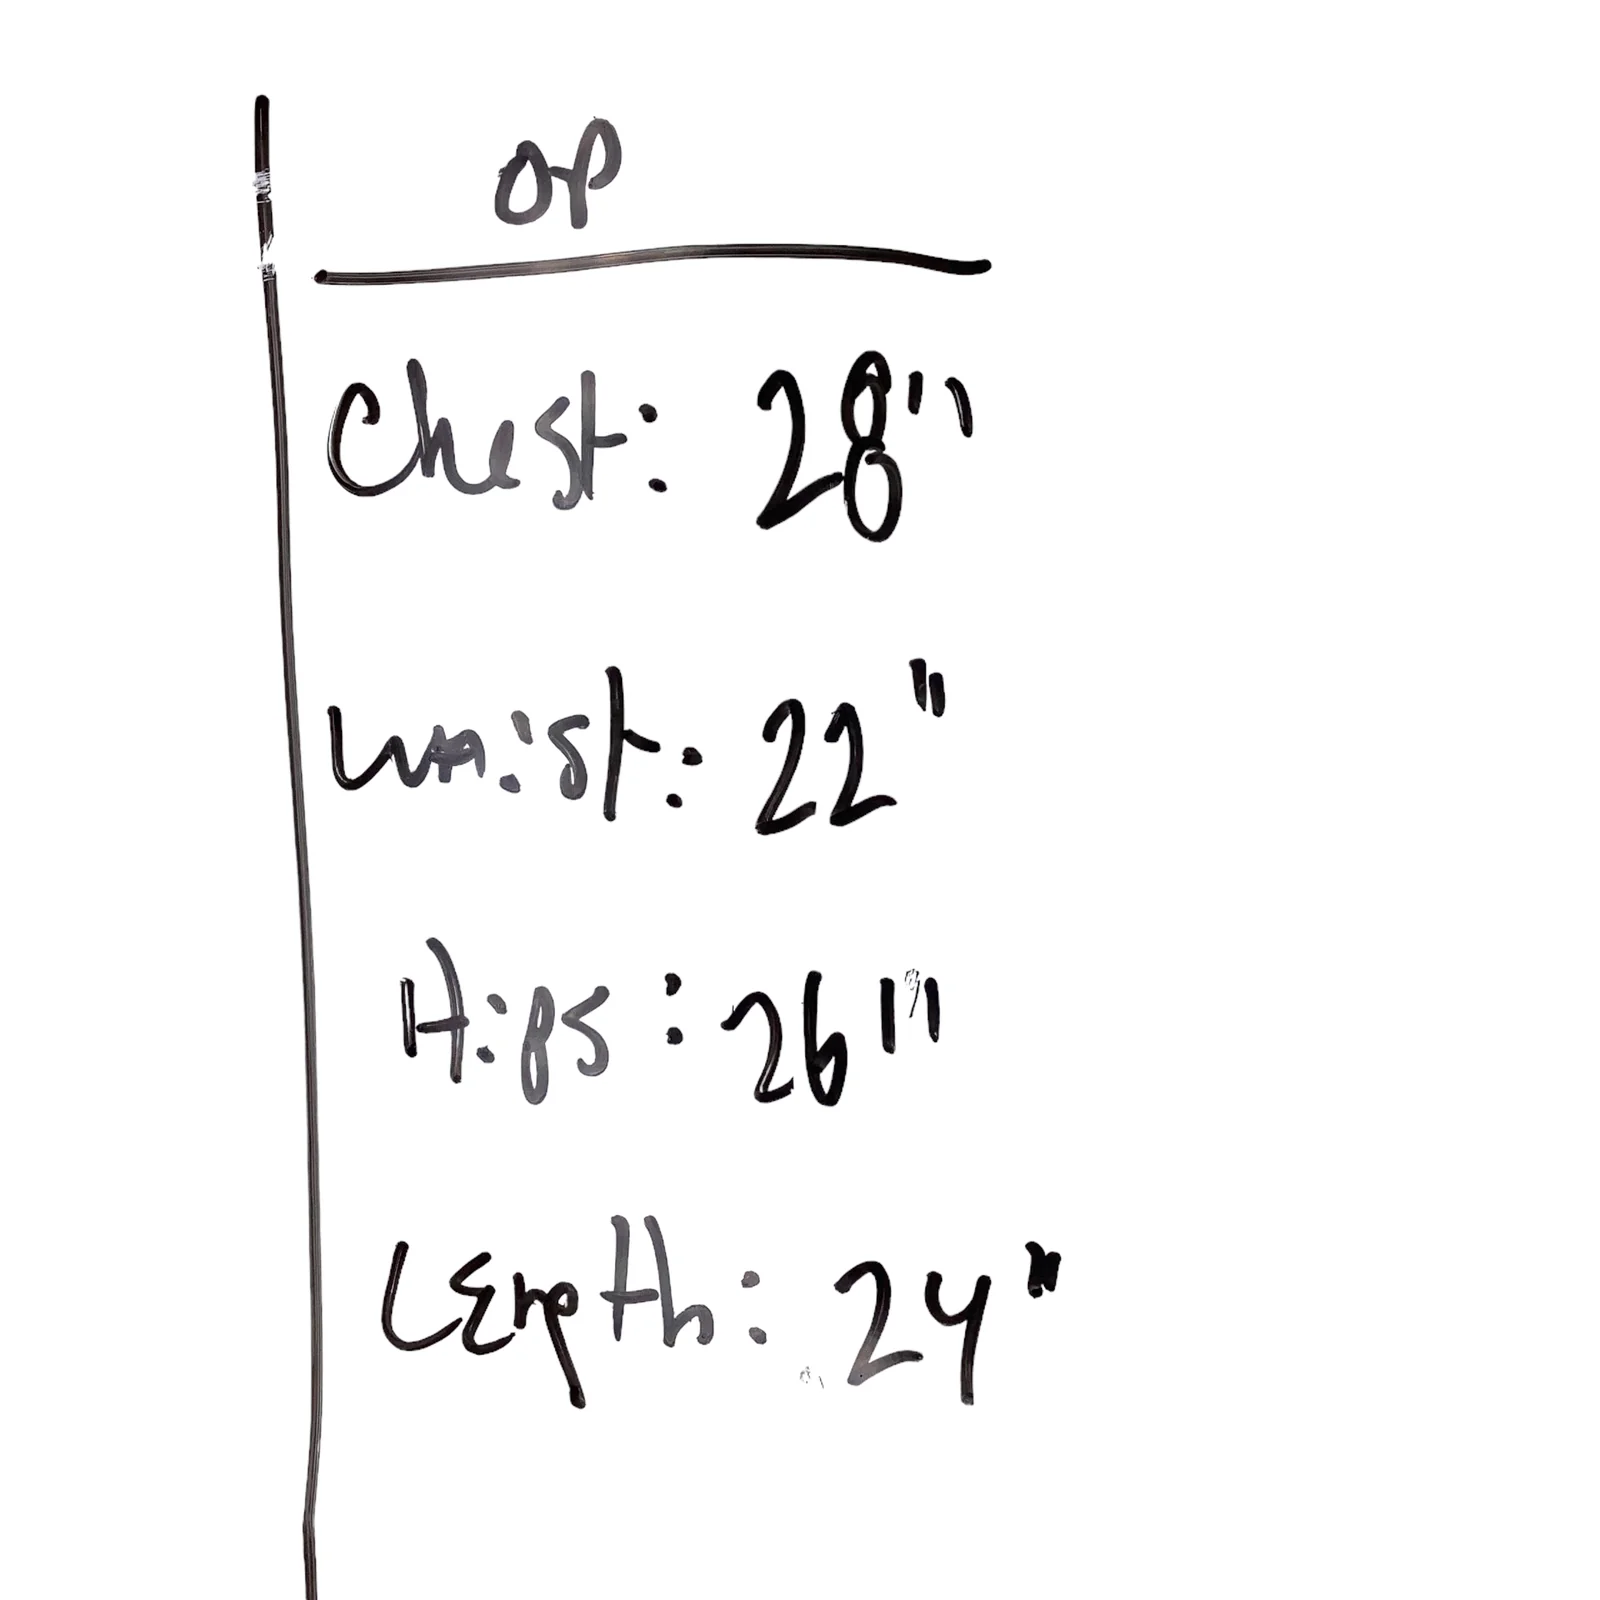 OP
Chest: 28"
Waist: 22"
Hips: 26"
Length: 24"